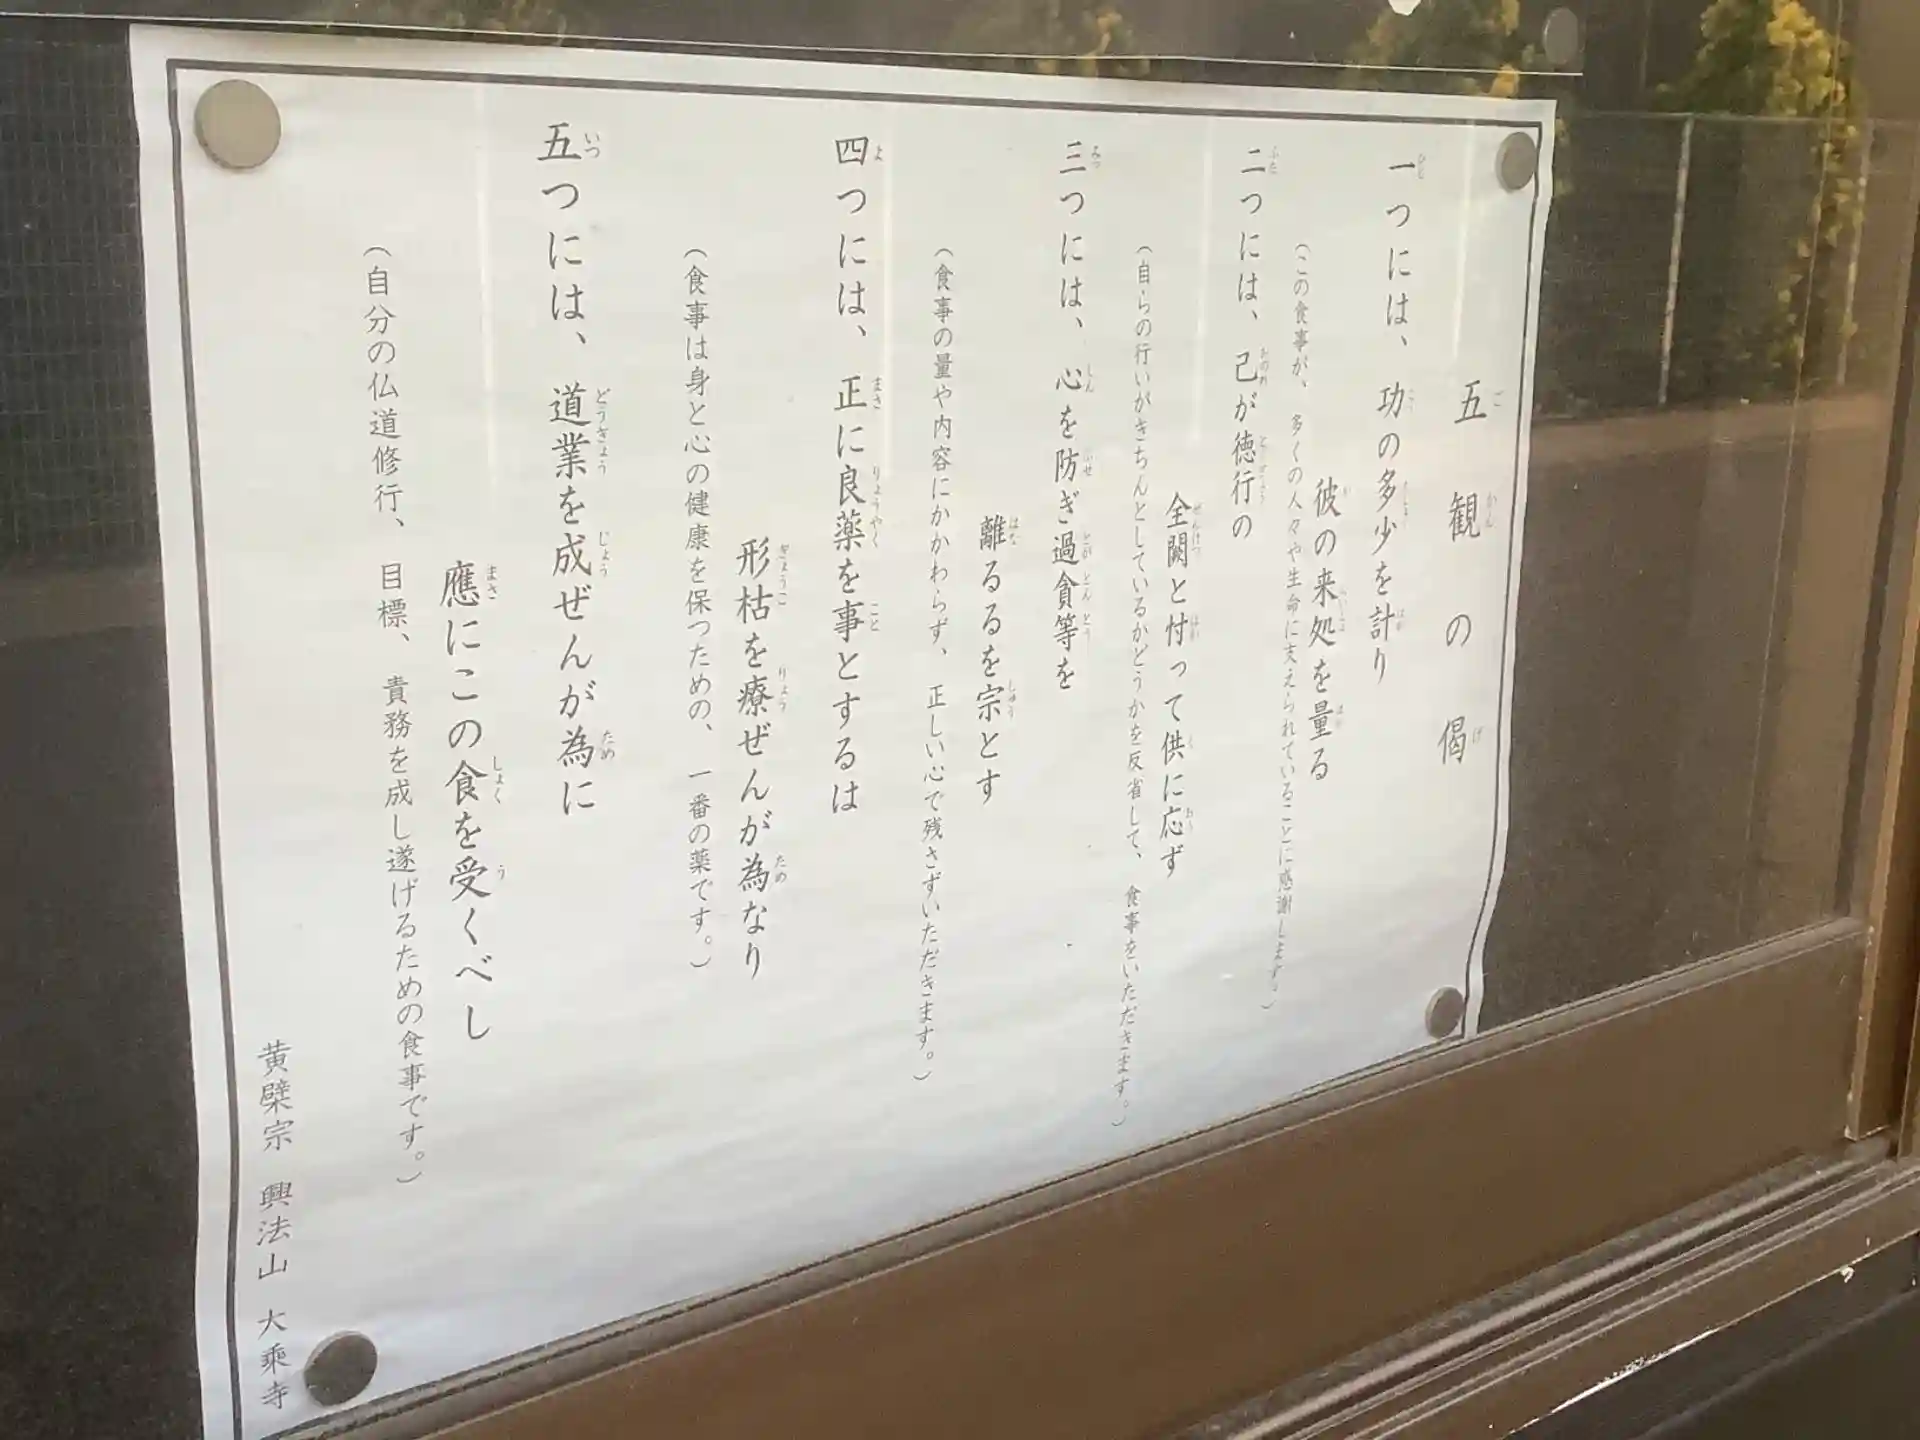 五観の偈
一つには、功の多少を計り
彼の来処を量る
（この食事が、多くの人々や生命に支えられていることに感謝します。）
二つには、己が徳行の
全闕と忖って供に応ず
（自らの行いがきちんとしているかどうかを反省して、食事をいただきます。）
三つには、心を防ぎ過貪等を
離るるを宗とす
（食事の量や内容にかかわらず、正しい心で残さずいただきます。）
四つには、正に良薬を事とするは
形枯を療ぜんが為なり
（食事は身と心の健康を保つための、一番の薬です。）
五つには、道業を成ぜんが為に
應にこの食を受くべし
（自分の仏道修行、目標、責務を成し遂げるための食事です。）
黄檗宗　興法山　大乘寺